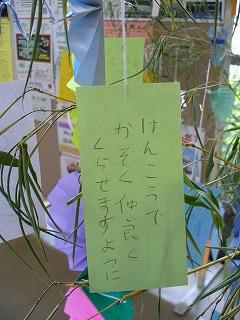 けんこうで
かぞく仲良く
くらせますように